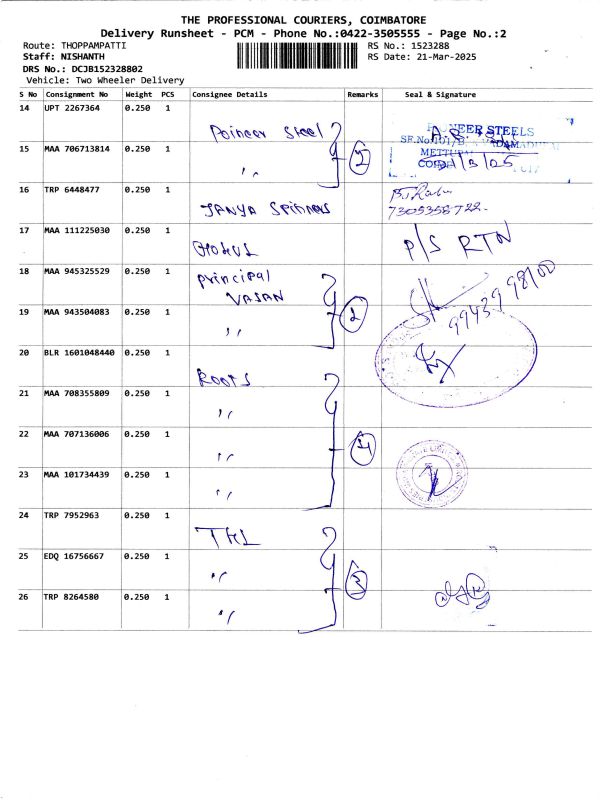 THE PROFESSIONAL COURIERS, COIMBATORE
Delivery Runsheet - PCM - Phone No.:0422-3505555 - Page No.:2
Route: THOPPAMPATTI RS No.: 1523288
Staff: NISHANTH RS Date: 21-Mar-2025
DRS No.: DCJB152328802
Vehicle: Two Wheeler Delivery
S No Consignment No Weight PCS Consignee Details Remarks Seal & Signature
14 UPT 2267364 0.250 1 Poineer Steel
PIONEER STEELS
15 MAA 706713814 0.250 1 " 2
16 TRP 6448477 0.250 1 JANYA SPinners
7305358722
17 MAA 111225030 0.250 1 P/S RTN
18 MAA 945325529 0.250 1 principal VASAN
99439 98100
19 MAA 943504083 0.250 1 " 2
20 BLR 1601048440 0.250 1 ROOTS
21 MAA 708355809 0.250 1 "
22 MAA 707136006 0.250 1 " 4
23 MAA 101734439 0.250 1 "
24 TRP 7952963 0.250 1
25 EDQ 16756667 0.250 1 " 3
26 TRP 8264580 0.250 1 "